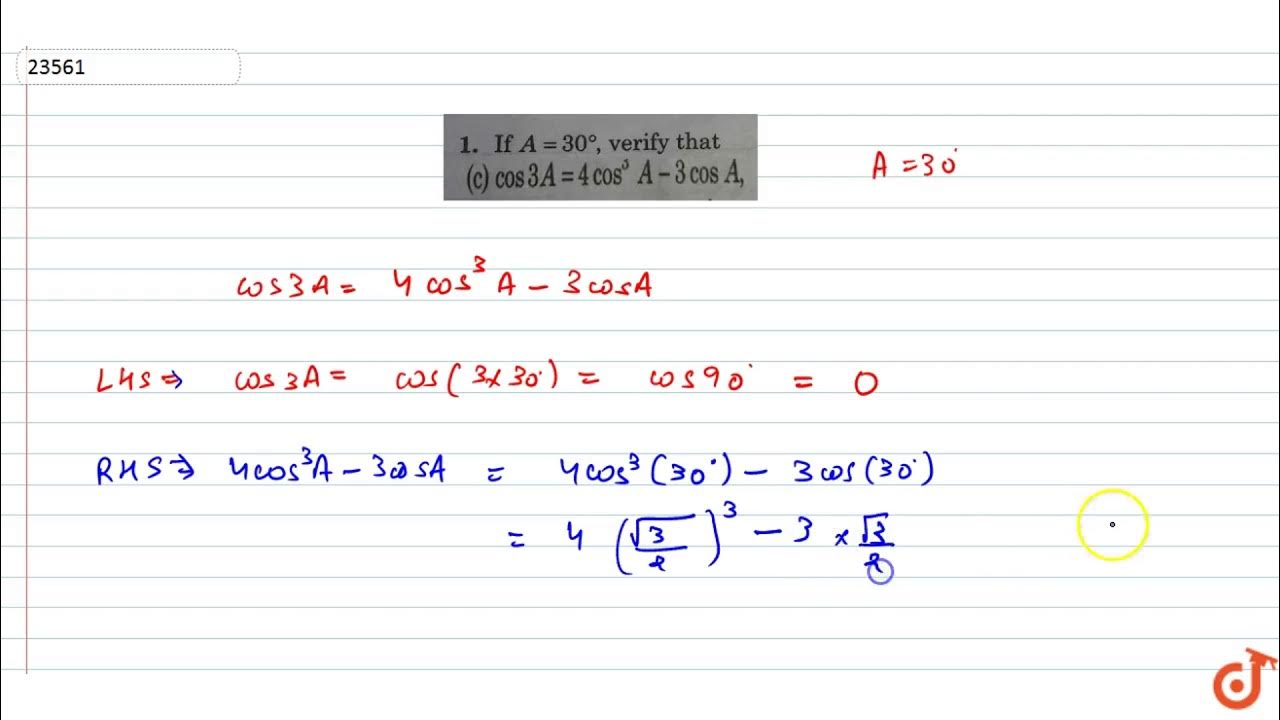 23561
1. If A = 30°, verify that
(c) cos 3A = 4 cos³ A – 3 cos A,
A = 30°
cos3A = 4 cos³ A – 3cosA
LHS ⇒ cos3A = cos(3×30°) = cos90° = 0
RHS ⇒ 4cos³A – 3cosA = 4cos³(30°) – 3cos(30°)
= 4 (√3/2)³ – 3 × √3/2